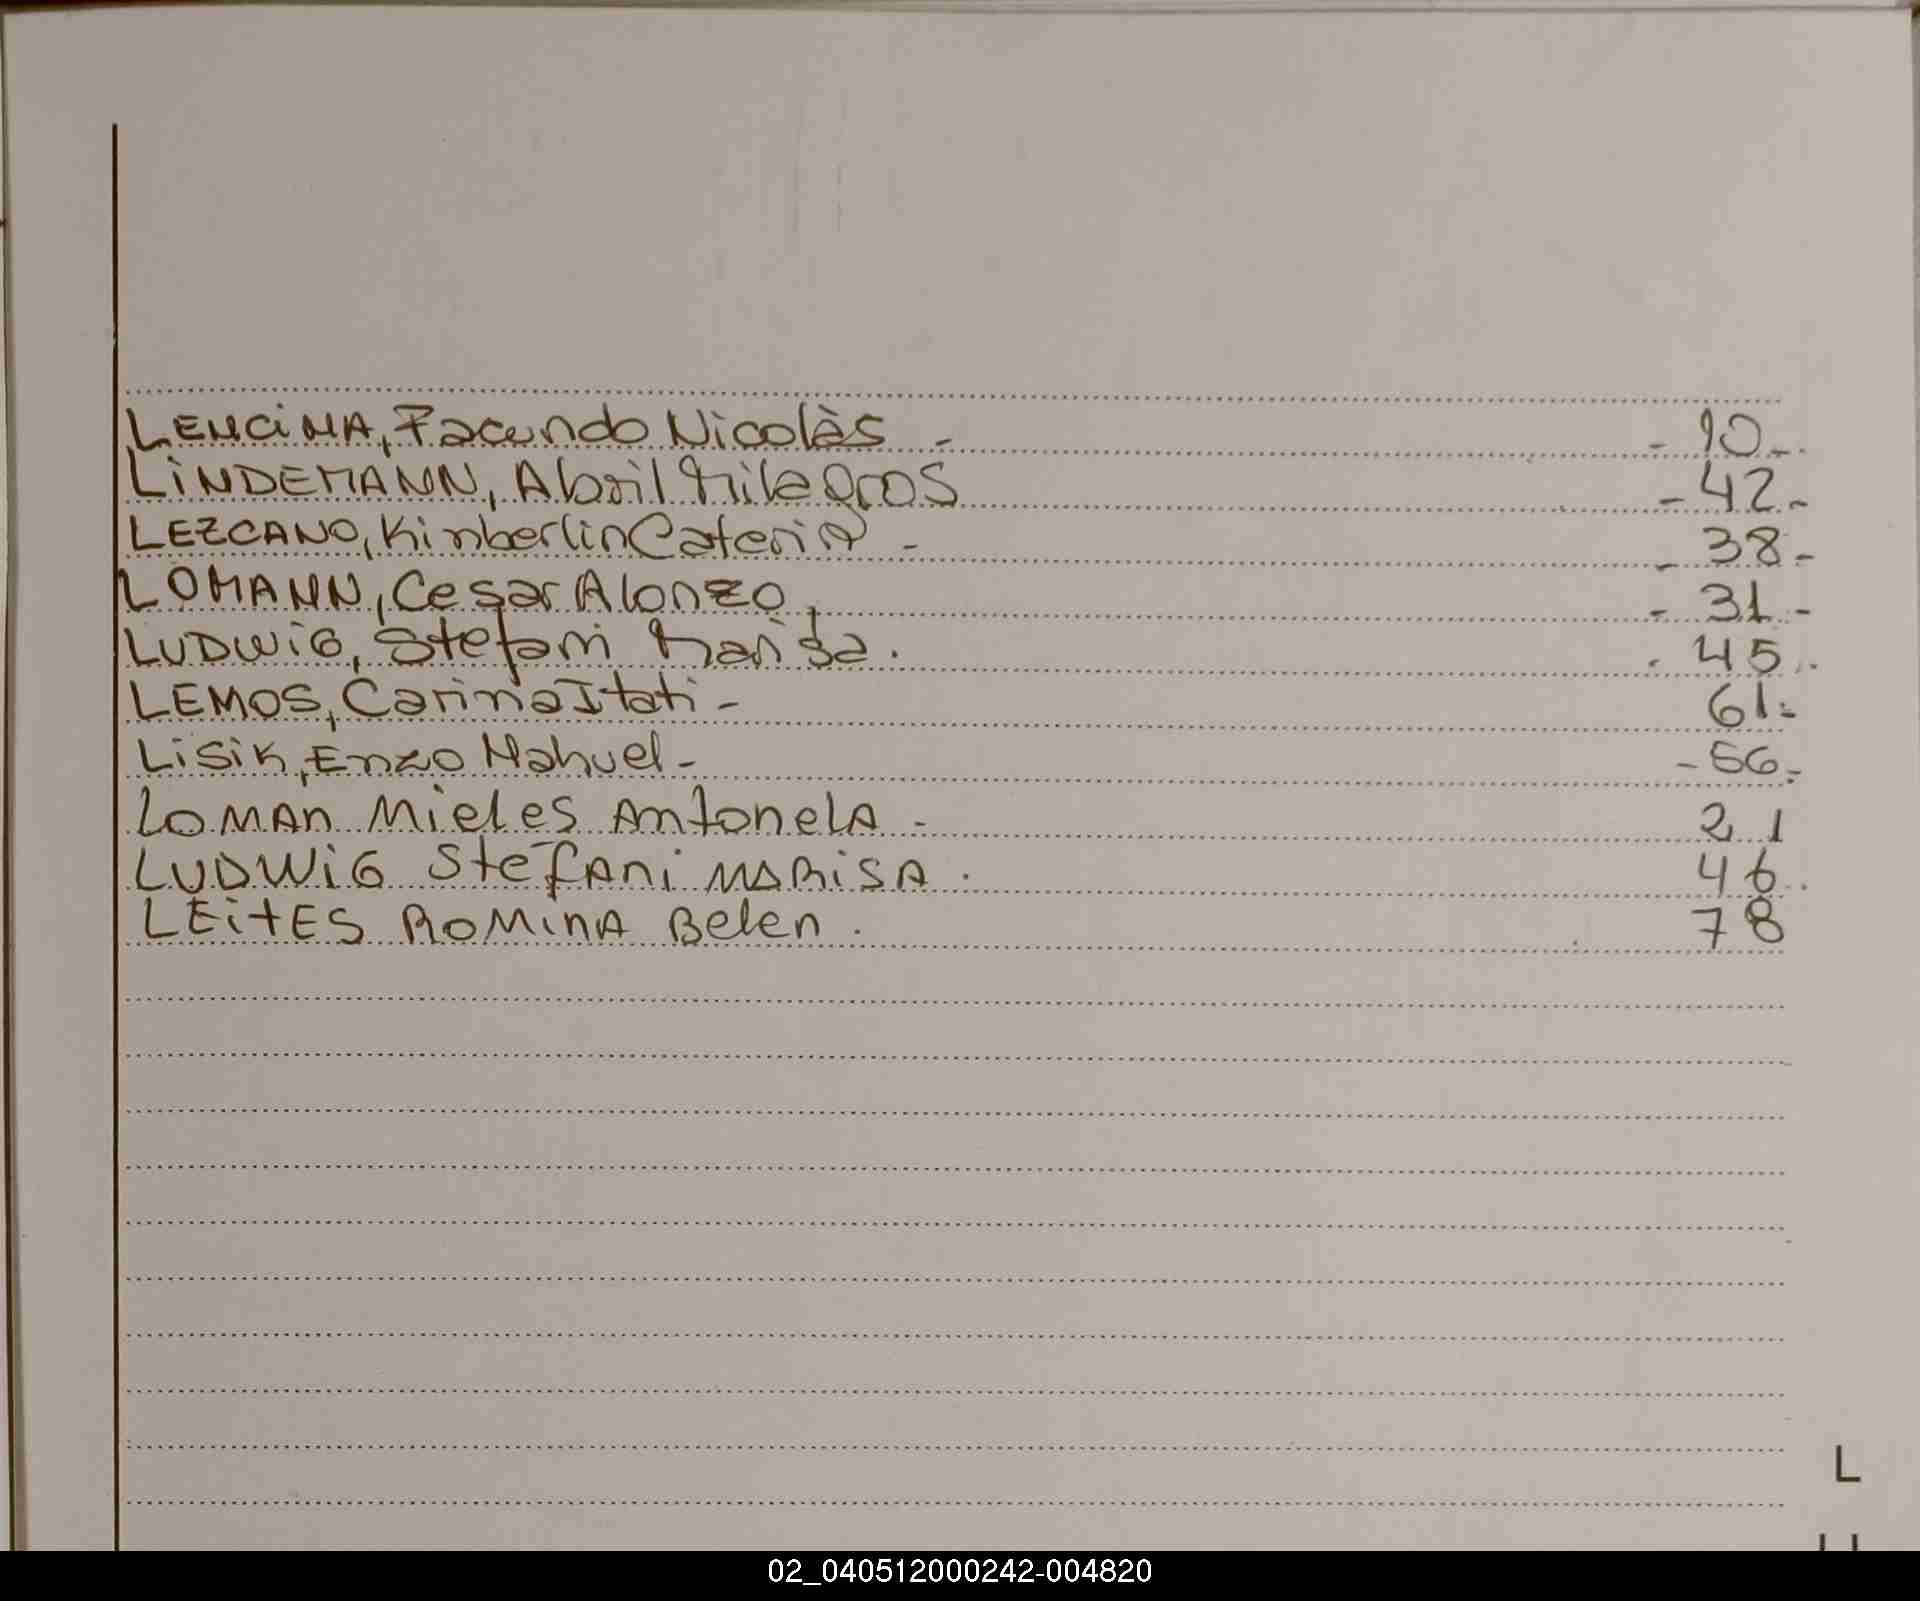 LENCINA, Facundo Nicolàs - - 10 -
LINDEMANN, Abril Milagros - 42 -
LEZCANO, Kimberlin Caterin - - 38 -
LOMANN, Cesar Alonzo, - 31 -
LUDWIG, Stefani Marisa. - 45.
LEMOS, Carina Itati - 61 -
LISIK, Enzo Nahuel - - 56 -
LOMAN Mieles Antonela - 21
LUDWIG Stefani MARISA. 46.
LEITES ROMINA Belen. 78
L
02_040512000242-004820